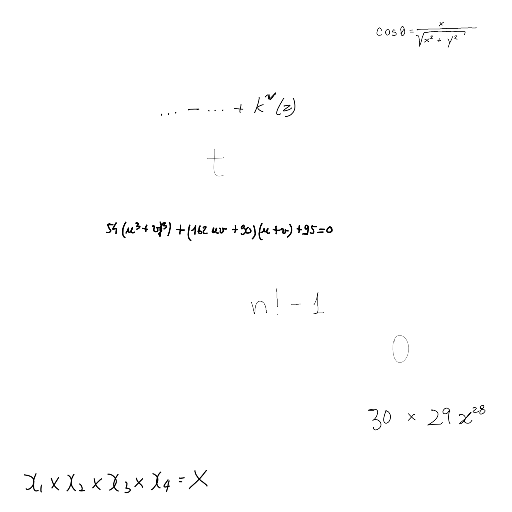 cosθ = x / √(x² + y²)
... - ... + k^v (z)
t
54(u³ + v³) + (162uv + 90)(u + v) + 95 = 0
n! - 1
0
30 × 29x²⁸
x₁ × x₂ × x₃ × x₄ = X